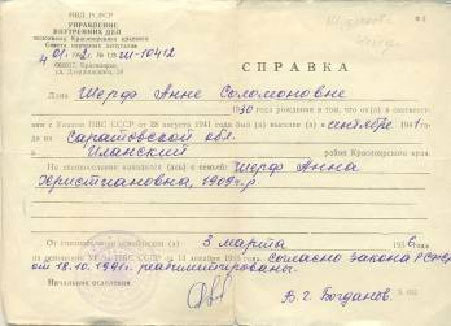 МВД РСФСР
УПРАВЛЕНИЕ
ВНУТРЕННИХ ДЕЛ
Красноярского краевого
Совета народных депутатов
4 01. 2 № Ш-10412
660017, Красноярск
ул. Дзержинского, 18
СПРАВКА
Дана Шерф Анне Соломоновне
1930 года рождения в том, что он(а) в соответст-
вии с Указом ПВС СССР от 28 августа 1941 года был (а) выслан (а) в сентябре 1941 го-
да из Саратовской обл.
в Иланский район Красноярского края
На спецпоселении находился (ась) с семьей: Шерф Анна
Христиановна, 1909 г.р
От спецпоселения освобожден (а) 3 марта 1956 года
на основании ПВС СССР от 13 декабря 1955 года. Согласно закона РСФСР
от 18.10.1991г. реабилитированы.
Начальник отделения В.Г. Богданов